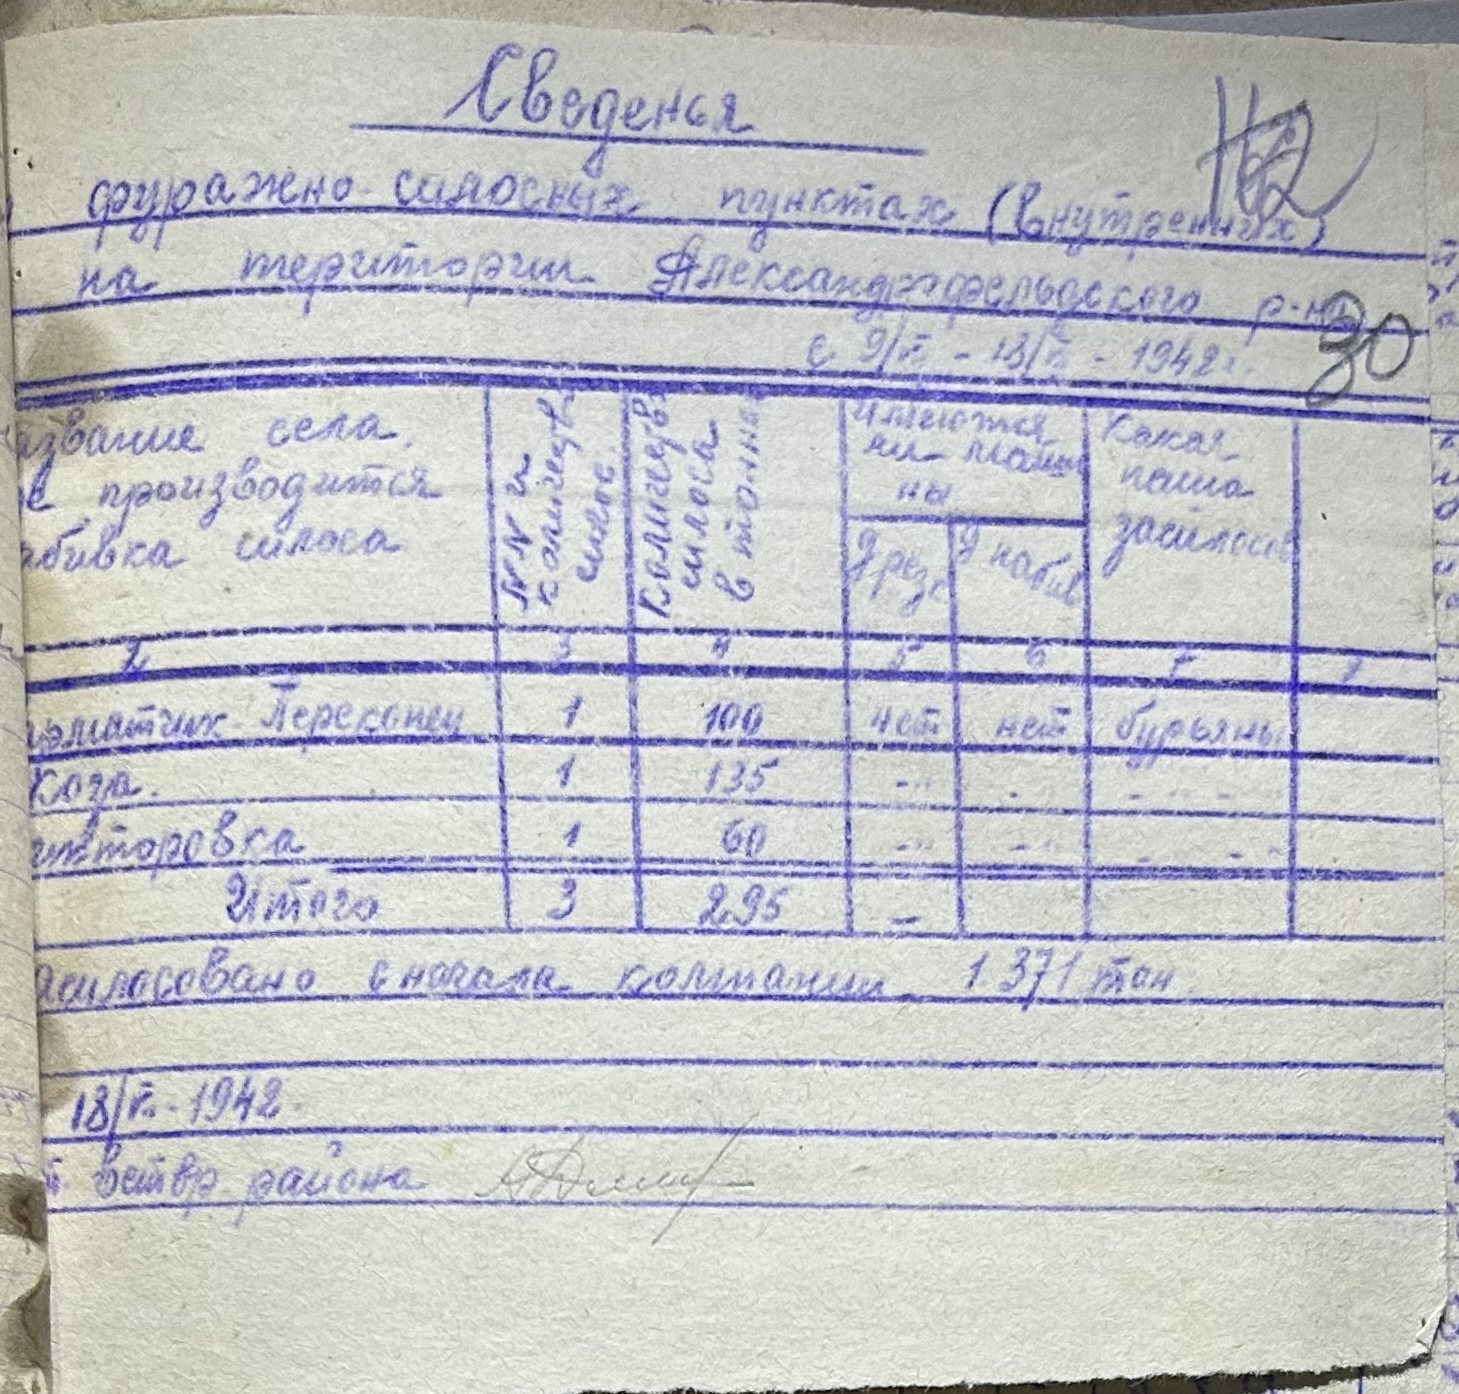 Сведенья
фуражно-силосных пунктах (внутренних)
на територии Александрфельдского р-на
30
с 9/VI - 18/VI - 1942 г.
азвание села.
е производится
абивка силоса
NN и
количеств
силос.
Количеств
силоса
в тоннах
Имеются
ли маши
ны
Какая
паша
засилосов
д резс
д набив
2 3 4 5 6 7
Перекопец 1 100 нет нет бурьяны
Коза. 1 135 -"- -"- - " -
икторовка 1 60 -"- -"- - " -
Итого 3 295 –
асилосовано с начала компании 1.371 тон.
18/VI - 1942.
т ветвр района